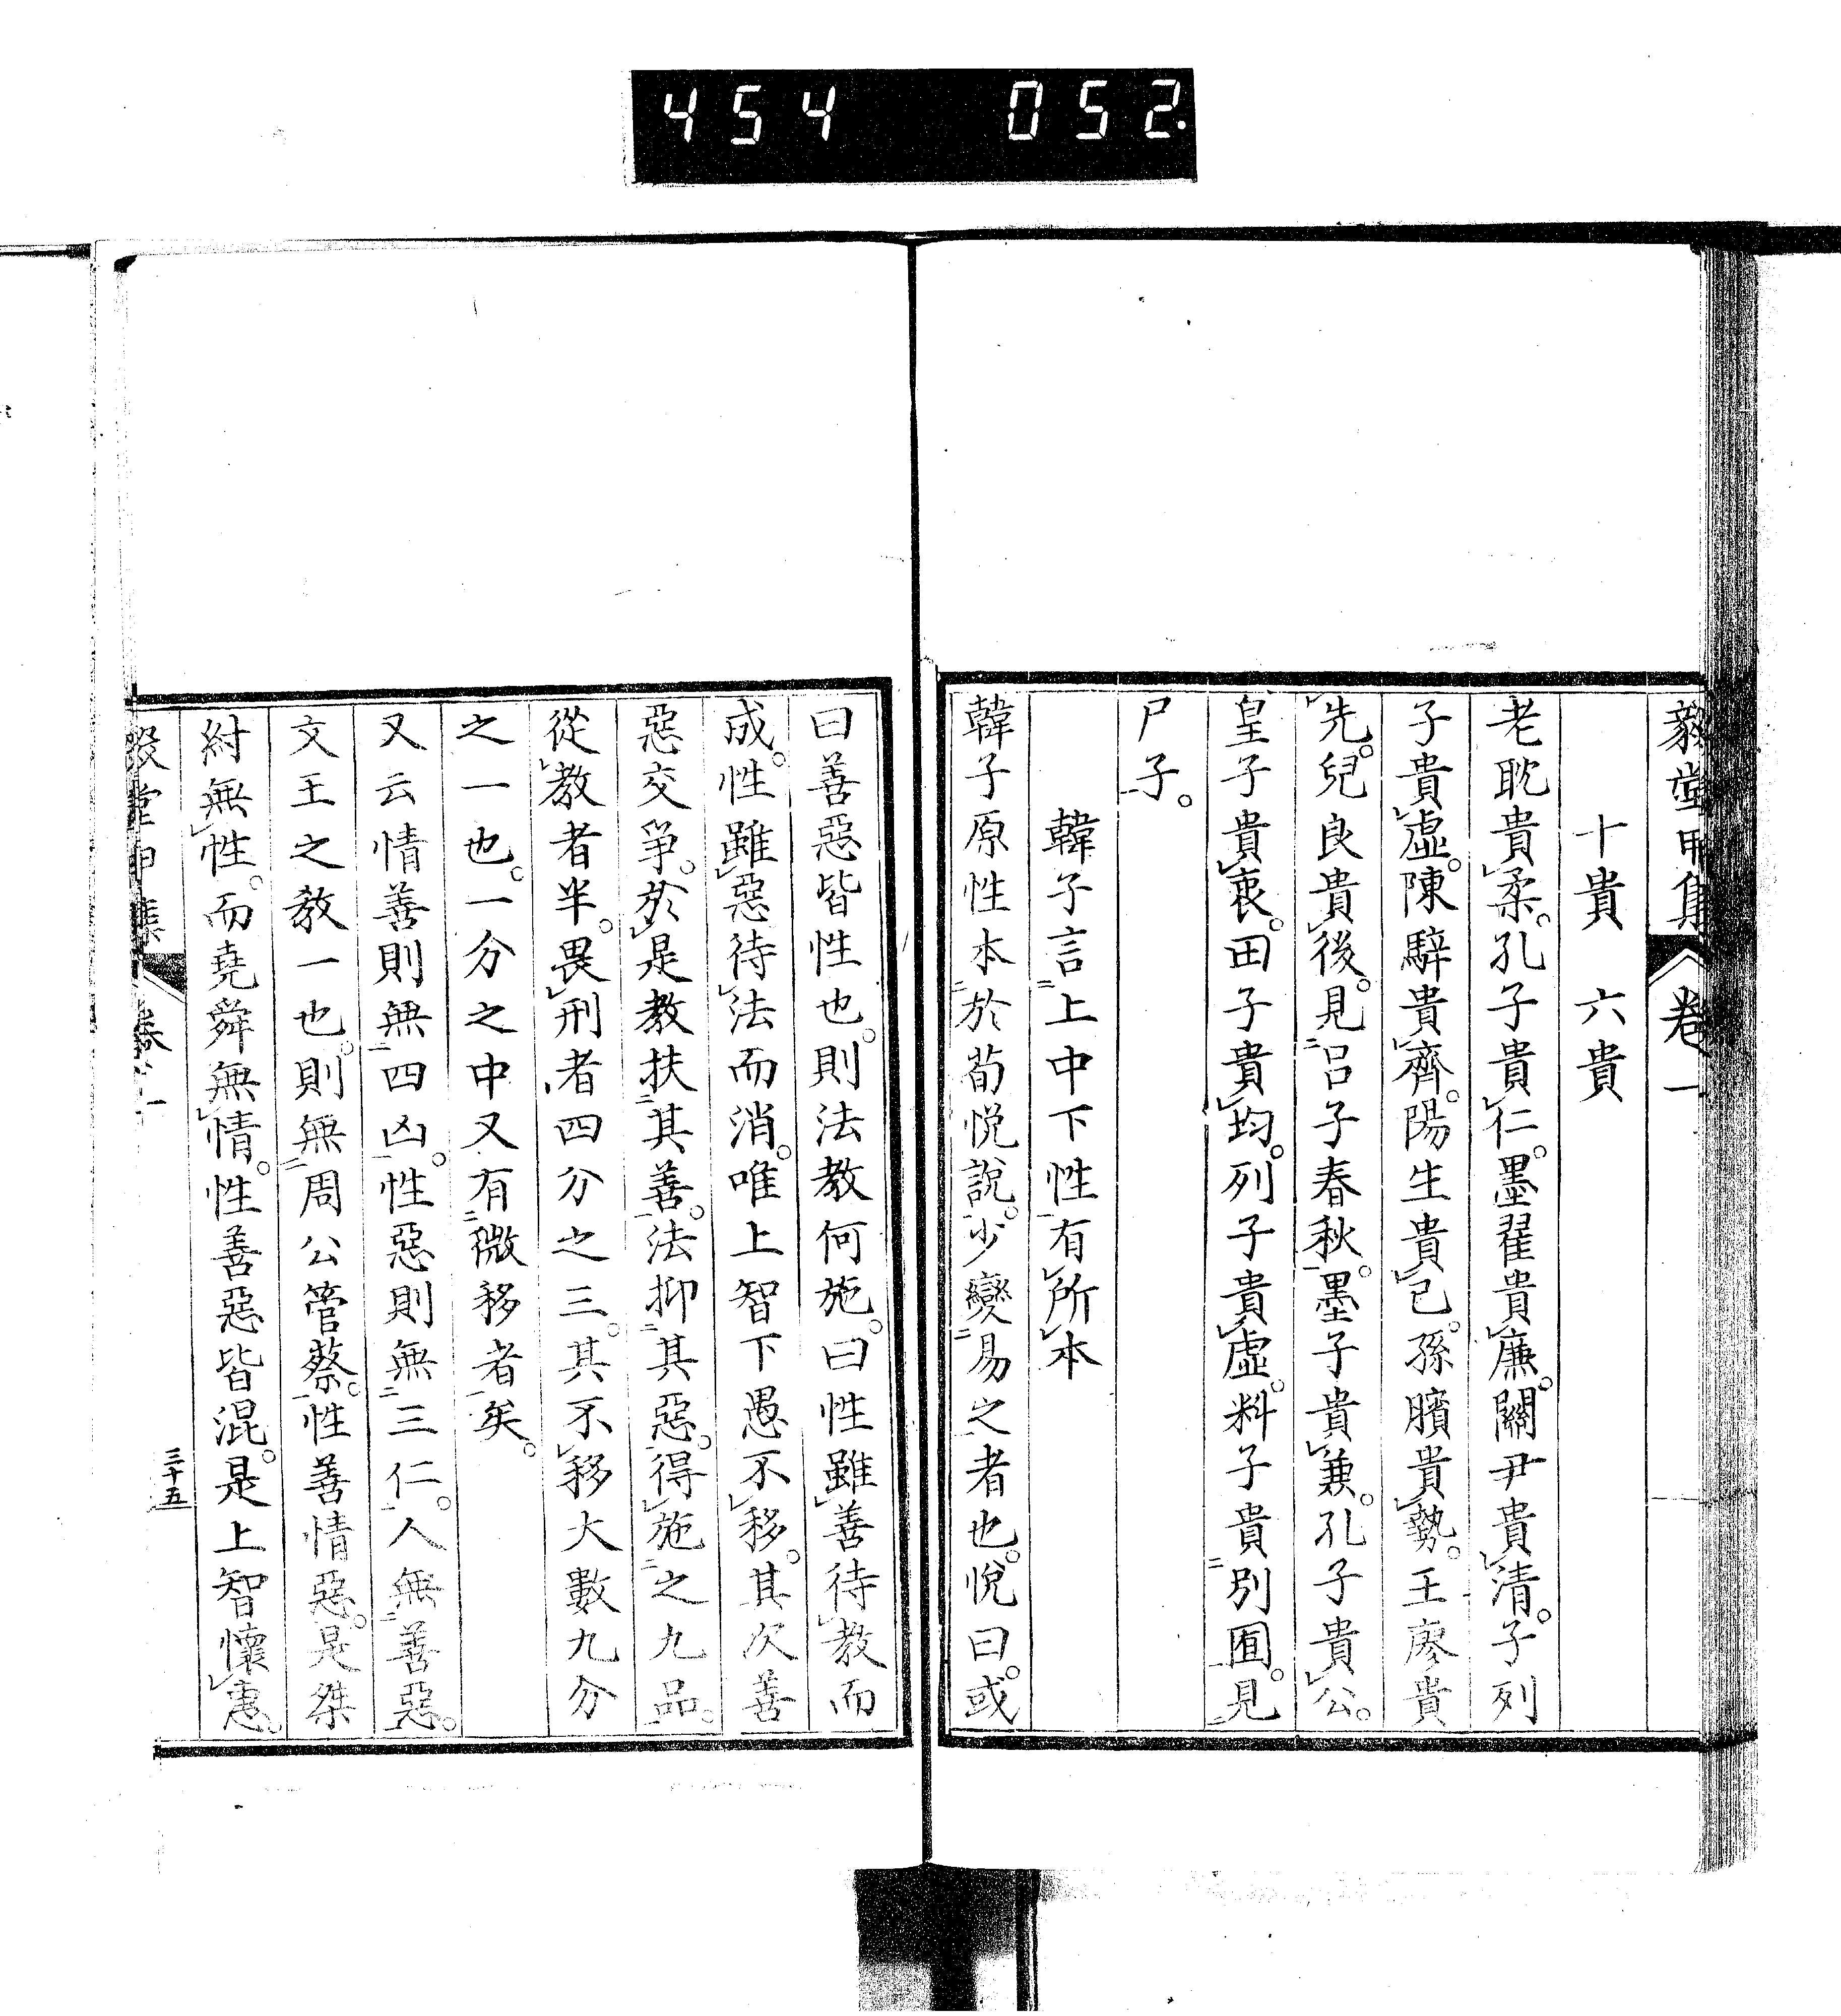 454 052.
毅堂甲集 卷一
十貴 六貴
老耽貴柔。孔子貴仁。墨翟貴廉。關尹貴清。子列
子貴虛。陳騈貴齊。陽生貴己。孫臏貴勢。王廖貴
先。兒良貴後。見呂子春秋。墨子貴兼。孔子貴公。
皇子貴衷。田子貴均。列子貴虛。料子貴別囿。見
尸子。
韓子言上中下性有所本
韓子原性本於荀悅說。少變易之者也。悅曰。或
曰善惡皆性也。則法教何施。曰性雖善待教而
成。性雖惡待法而消。唯上智下愚不移。其次善
惡交爭。於是教扶其善。法抑其惡。得施之九品。
從教者半。畏刑者四分之三。其不移大數九分
之一也。一分之中又有微移者矣。
又云情善則無四凶。性惡則無三仁。人無善惡。
文王之教一也。則無周公管蔡。性善情惡。是桀
紂無性。而堯舜無情。性善惡皆混。是上智懷惠。
三十五